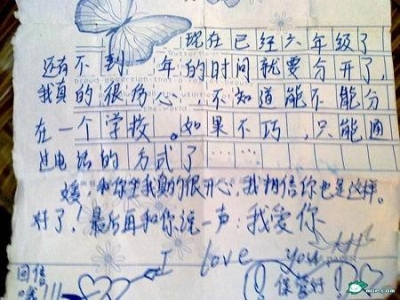 现在已经六年级了
还有不到一年的时间就要分开了,
我真的很伤心,不知道能不能分
在一个学校。如果不巧,只能通
过电话的方式了……
和你坐我真的很开心,我相信你也是这样.
对了!最后再和你说一声:我爱你
I love you
回信
保管好